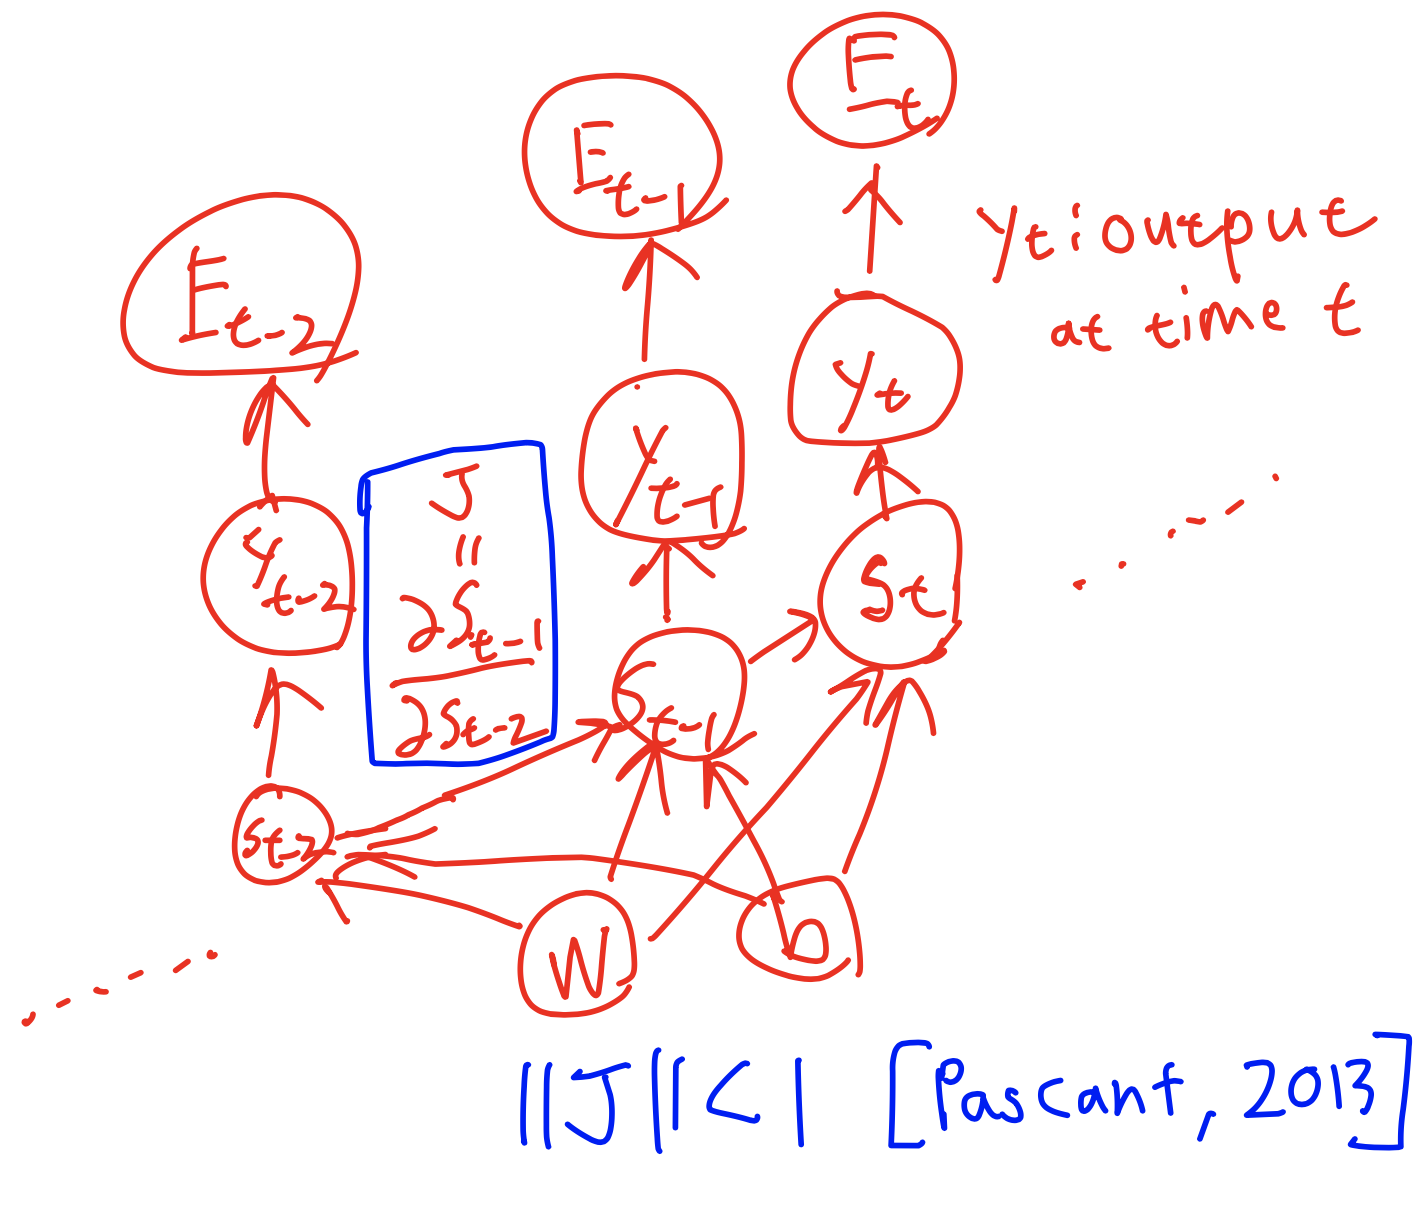 E_t
E_{t-1}
y_t: output
at time t
E_{t-2}
y_t
y_{t-1}
y_{t-2}
J
=
∂S_{t-1}
∂S_{t-2}
S_t
S_{t-1}
S_{t-2}
W
b
||J|| < 1 [Pascanf, 2013]